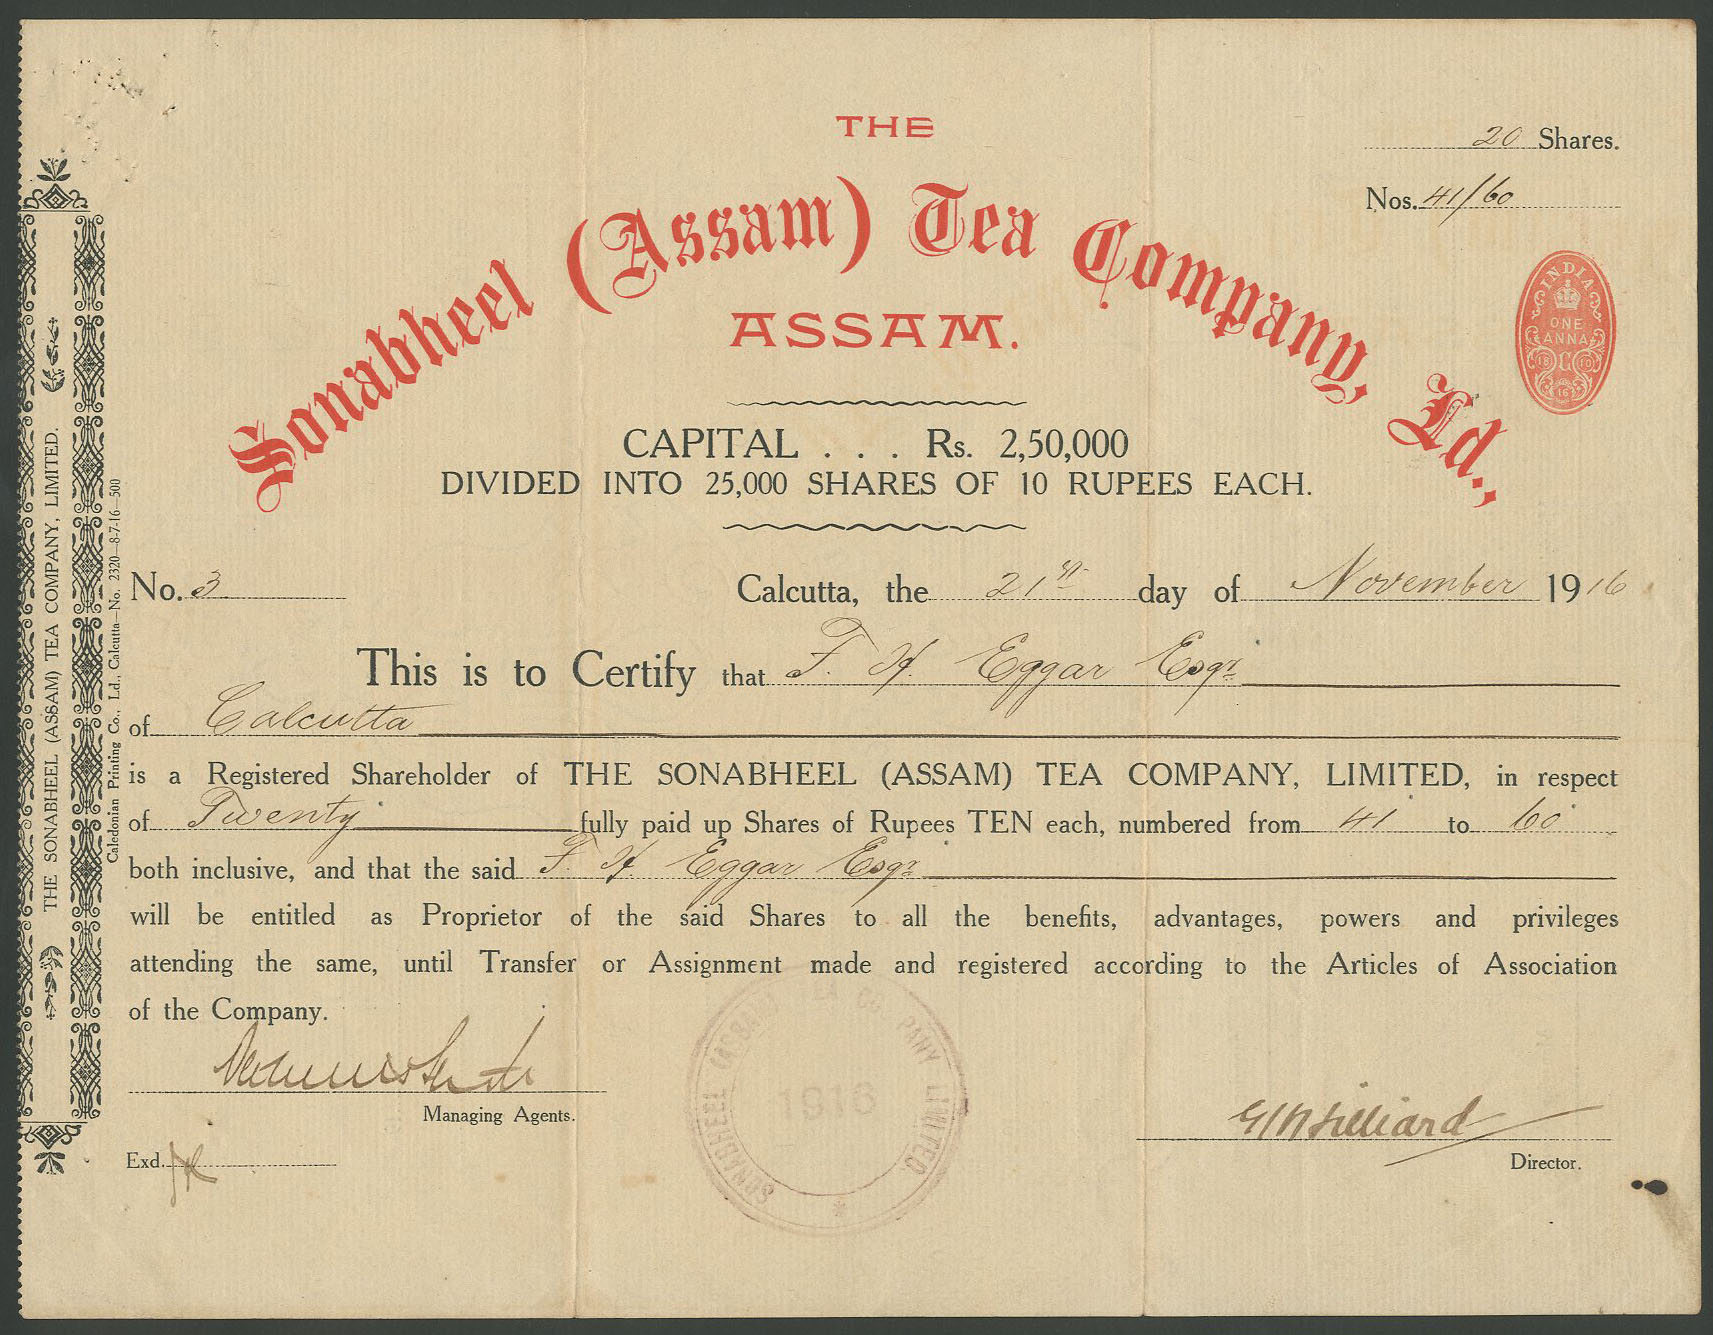 THE
Sonabheel (Assam) Tea Company, Ld.,
ASSAM.
20 Shares.
Nos. 41/60
INDIA
ONE
ANNA
CAPITAL . . . Rs. 2,50,000
DIVIDED INTO 25,000 SHARES OF 10 RUPEES EACH.
No. 3
Calcutta, the 21st day of November 1916
This is to Certify that F. H. Eggar Esqr.
of Calcutta
is a Registered Shareholder of THE SONABHEEL (ASSAM) TEA COMPANY, LIMITED, in respect
of Twenty fully paid up Shares of Rupees TEN each, numbered from 41 to 60
both inclusive, and that the said F. H. Eggar Esqr.
will be entitled as Proprietor of the said Shares to all the benefits, advantages, powers and privileges
attending the same, until Transfer or Assignment made and registered according to the Articles of Association
of the Company.
Managing Agents.
Exd.
Director.
SONABHEEL (ASSAM) TEA COMPANY LIMITED
1916
THE SONABHEEL (ASSAM) TEA COMPANY, LIMITED.
Caledonian Printing Co., Ld., Calcutta—No. 2320—8-7-16—500